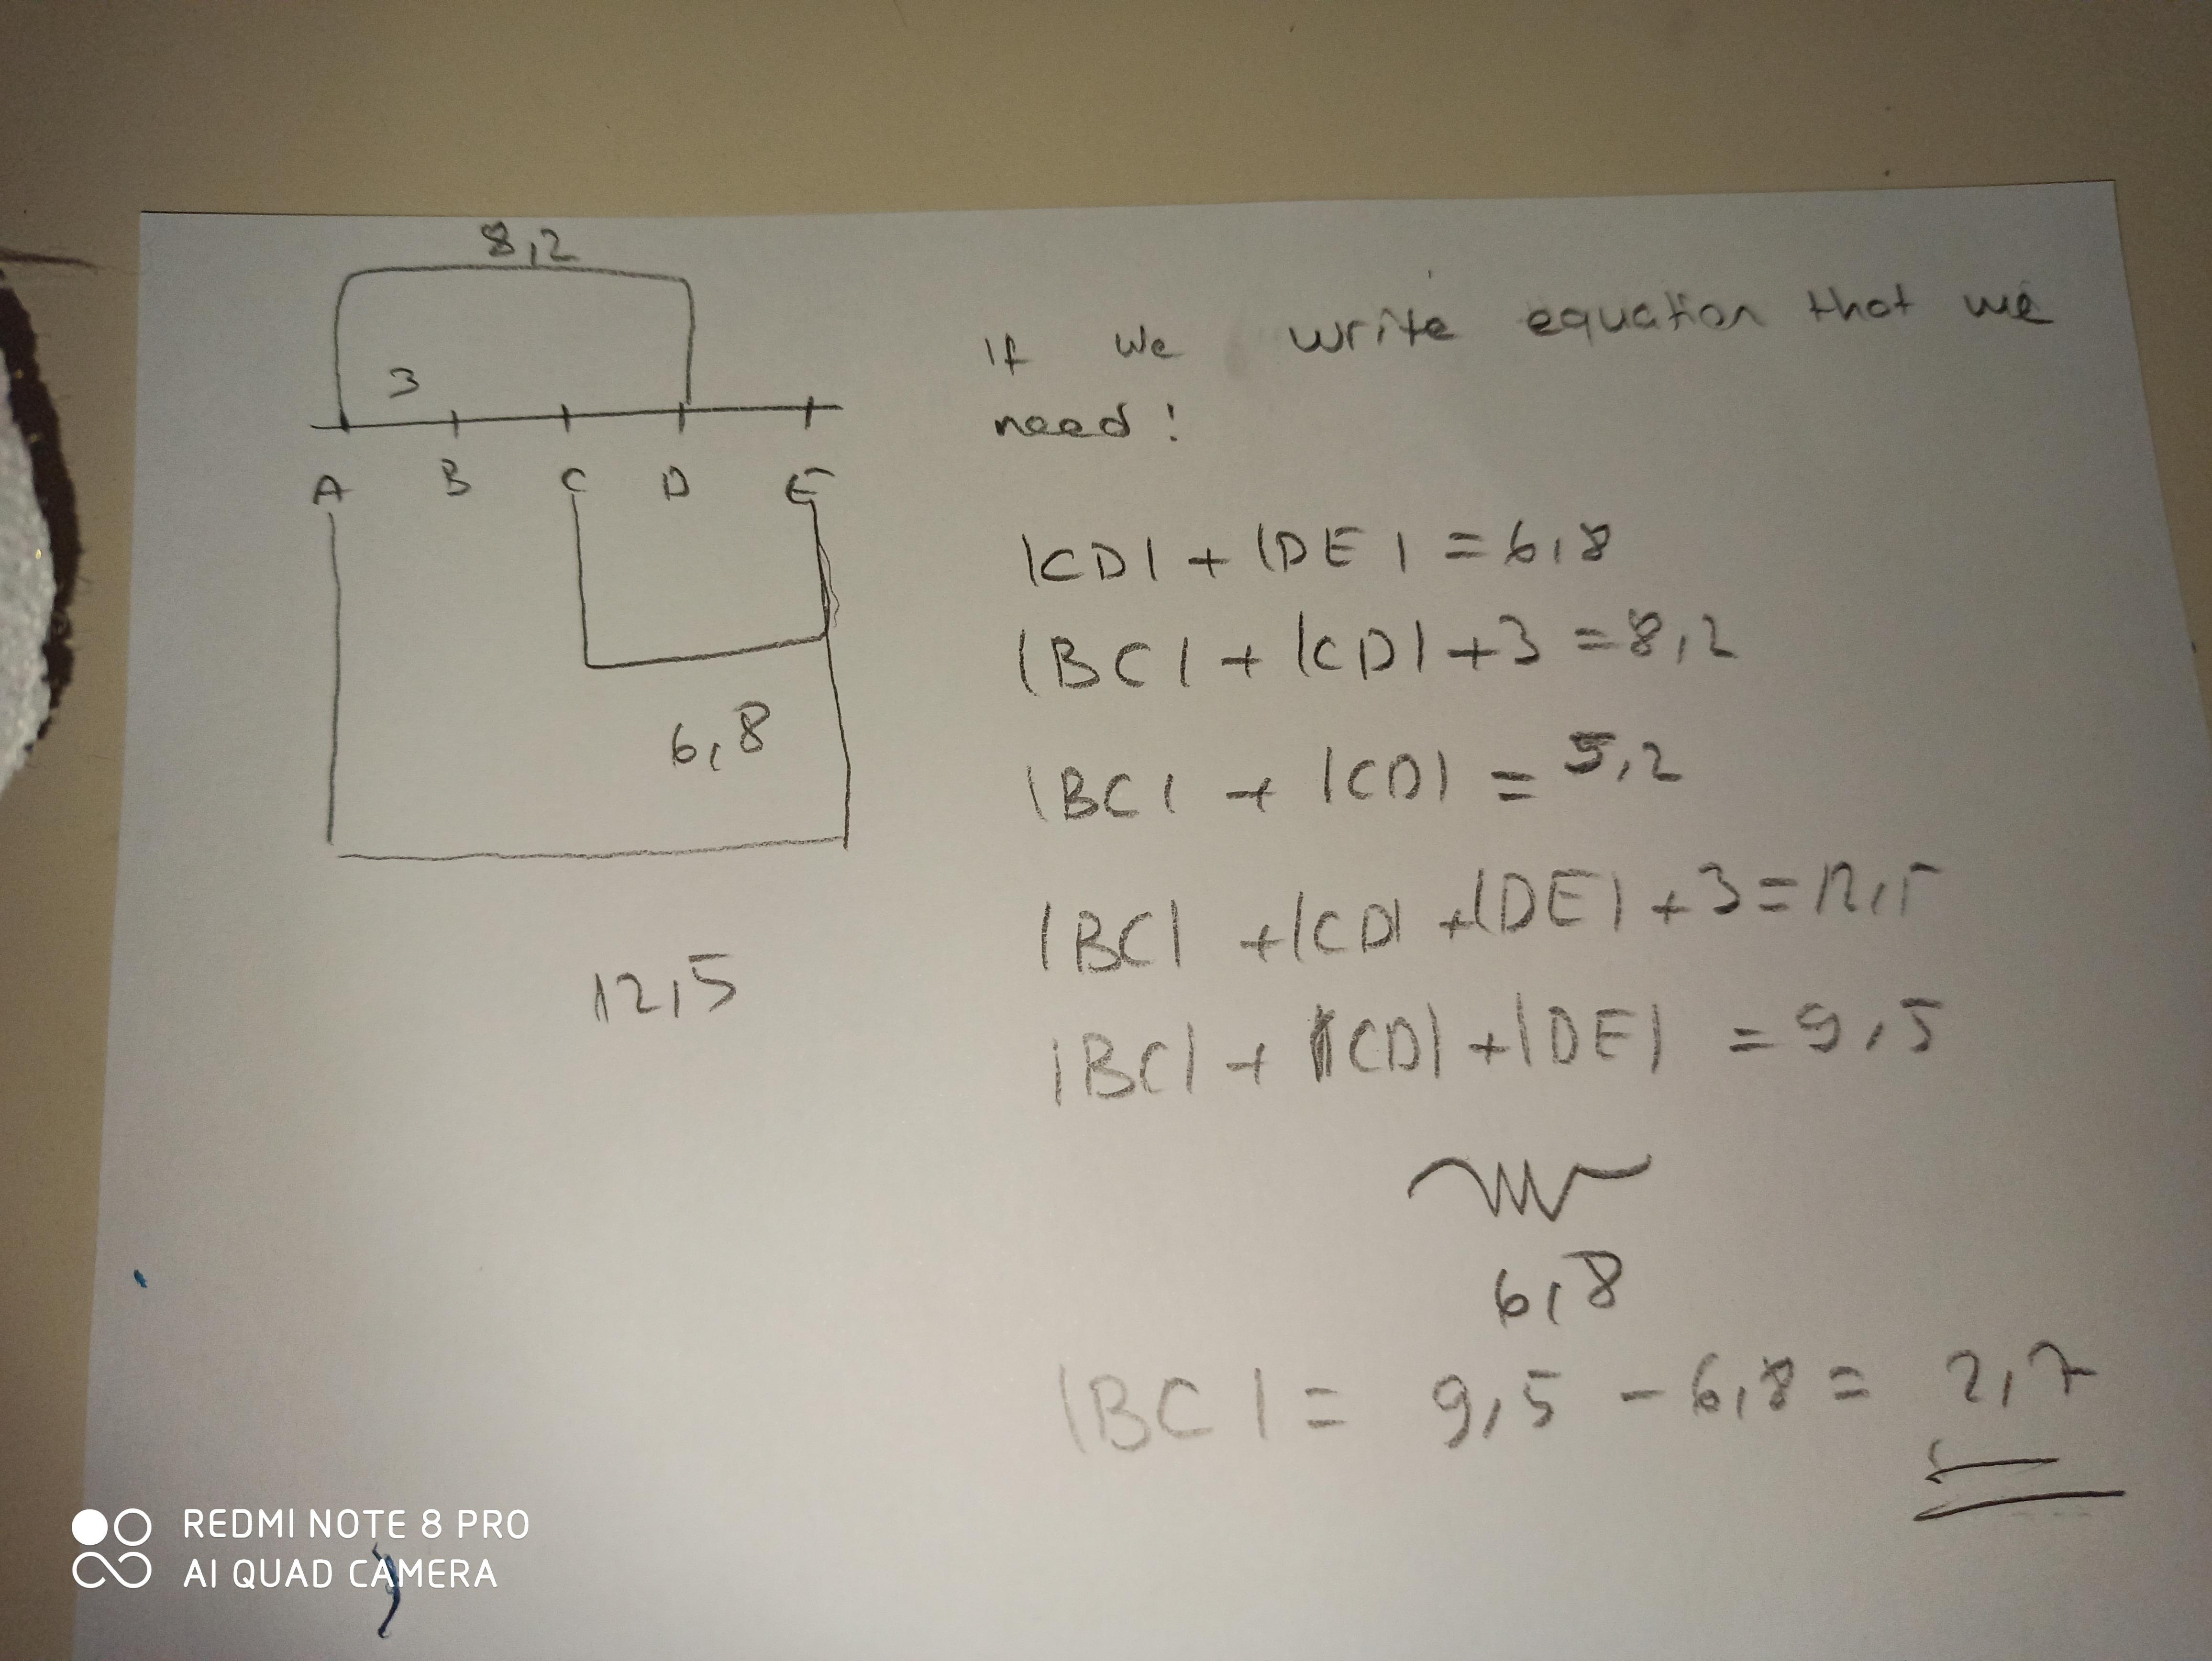 8,2
3
A B C D E
6,8
12,5
If we write equation that we
need:
|CD| + |DE| = 6,8
|BC| + |CD| + 3 = 8,2
|BC| + |CD| = 5,2
|BC| + |CD| + |DE| + 3 = 12,5
|BC| + |CD| + |DE| = 9,5
6,8
|BC| = 9,5 - 6,8 = 2,7
REDMI NOTE 8 PRO
AI QUAD CAMERA